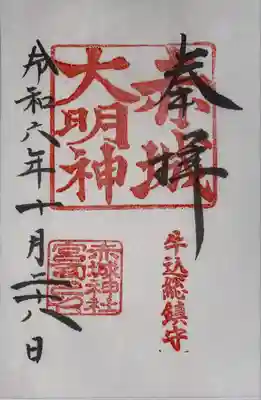 奉拝
赤城
大明神
牛込総鎮守
赤城神社
令和六年十月二十八日